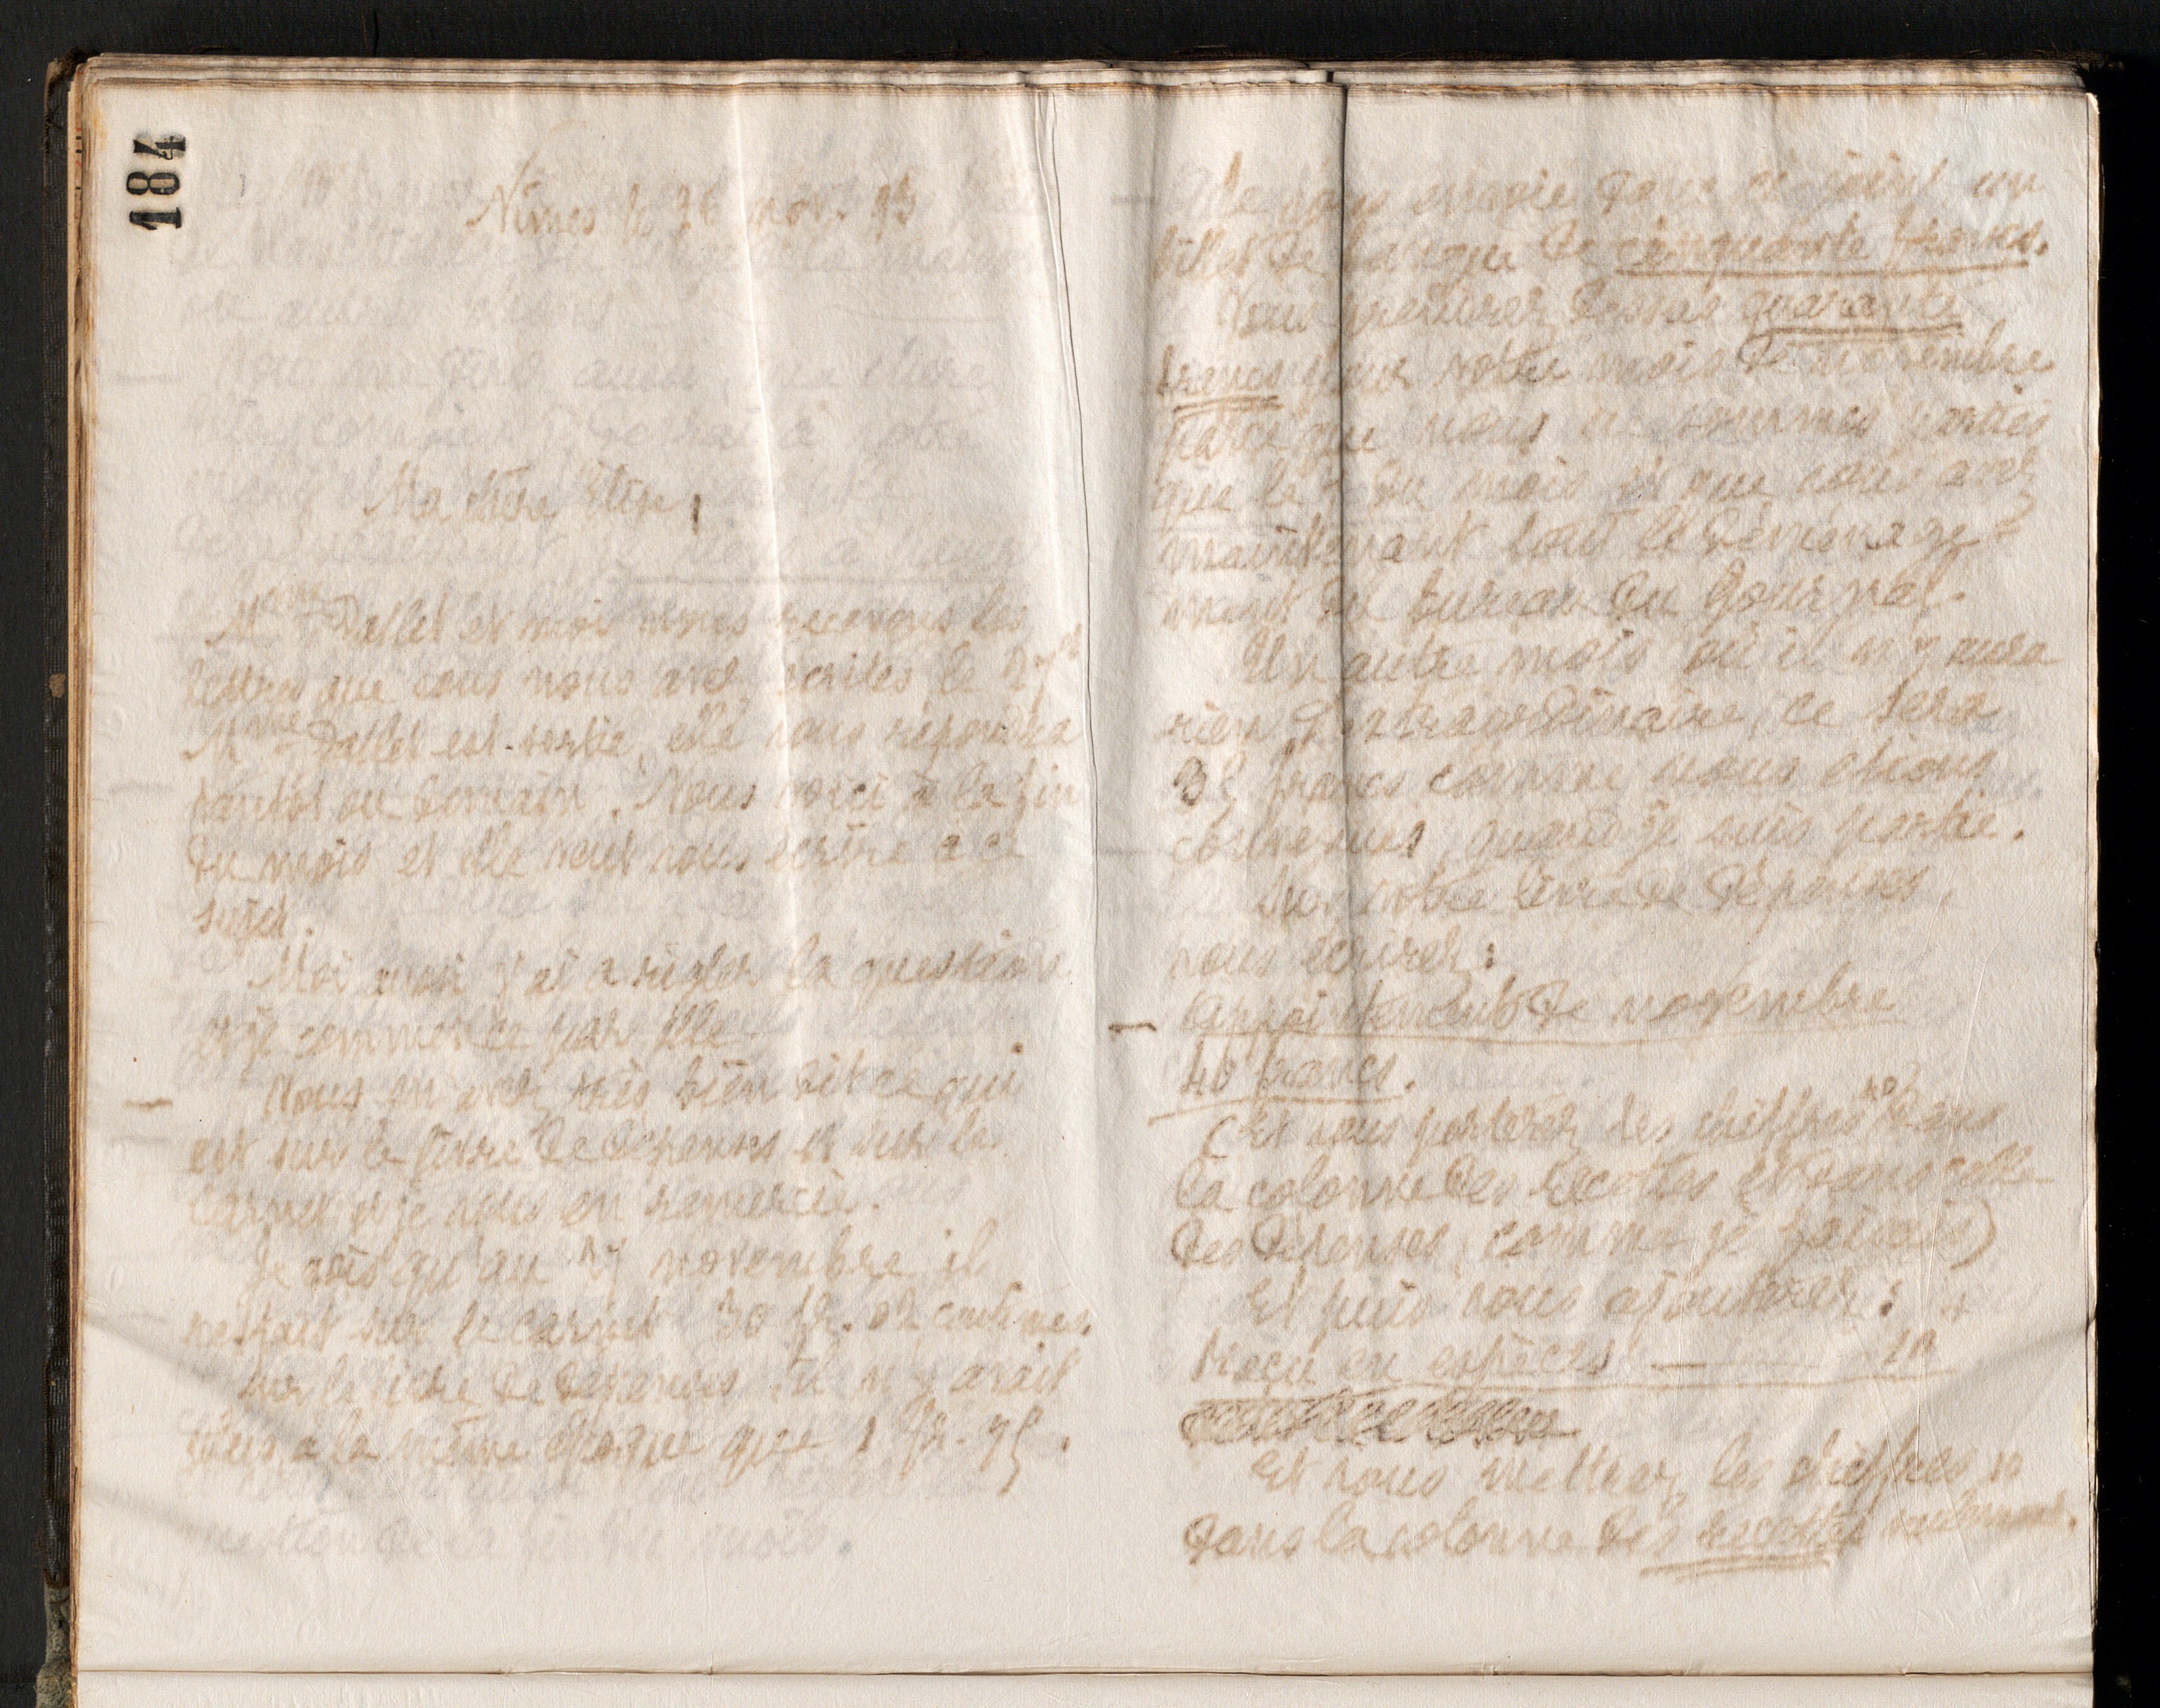 184
Nîmes le 28 nov. 95
Ma chère Elise,
Mme Dallet et moi nous recevons les
lettres que vous nous avez écrites le 27
Mme Dallet est sortie, elle vous répondra
tantôt ou demain. Nous voici à la fin
du mois et elle veut vous écrire à ce
sujet.
Moi aussi j'ai à régler la question
et je commence par elle.
Vous m'avez très bien dit ce qui
est sur le livre de dépenses et sur le
carnet et je vous en remercie.
Je vois qu'au 27 novembre il
restait sur le carnet 30 fr. 02 centimes.
Sur le livre de dépenses il n'y avait
à la même époque que 1 fr. 75.
Je vous envoie donc ci-joint un
billet de banque de cinquante francs.
Vous prendrez dessus quarante
francs pour votre mois de novembre
parce que nous ne sommes parties
que le du mois et que vous avez
maintenant tout le déménage-
ment du bureau du Journal.
Un autre mois où il n'y aura
rien d'extraordinaire, ce sera
francs comme nous étions
convenues quand je suis partie.
Sur votre livre de dépenses,
vous écrirez :
Appointements de novembre
40 francs.
(Et vous porterez les chiffres 40 dans
la colonne des recettes et dans celle
des dépenses, comme je faisais)
Et puis vous ajouterez :
Reçu en espèces — 10
Et vous mettrez les chiffres 10
dans la colonne des recettes seulement.